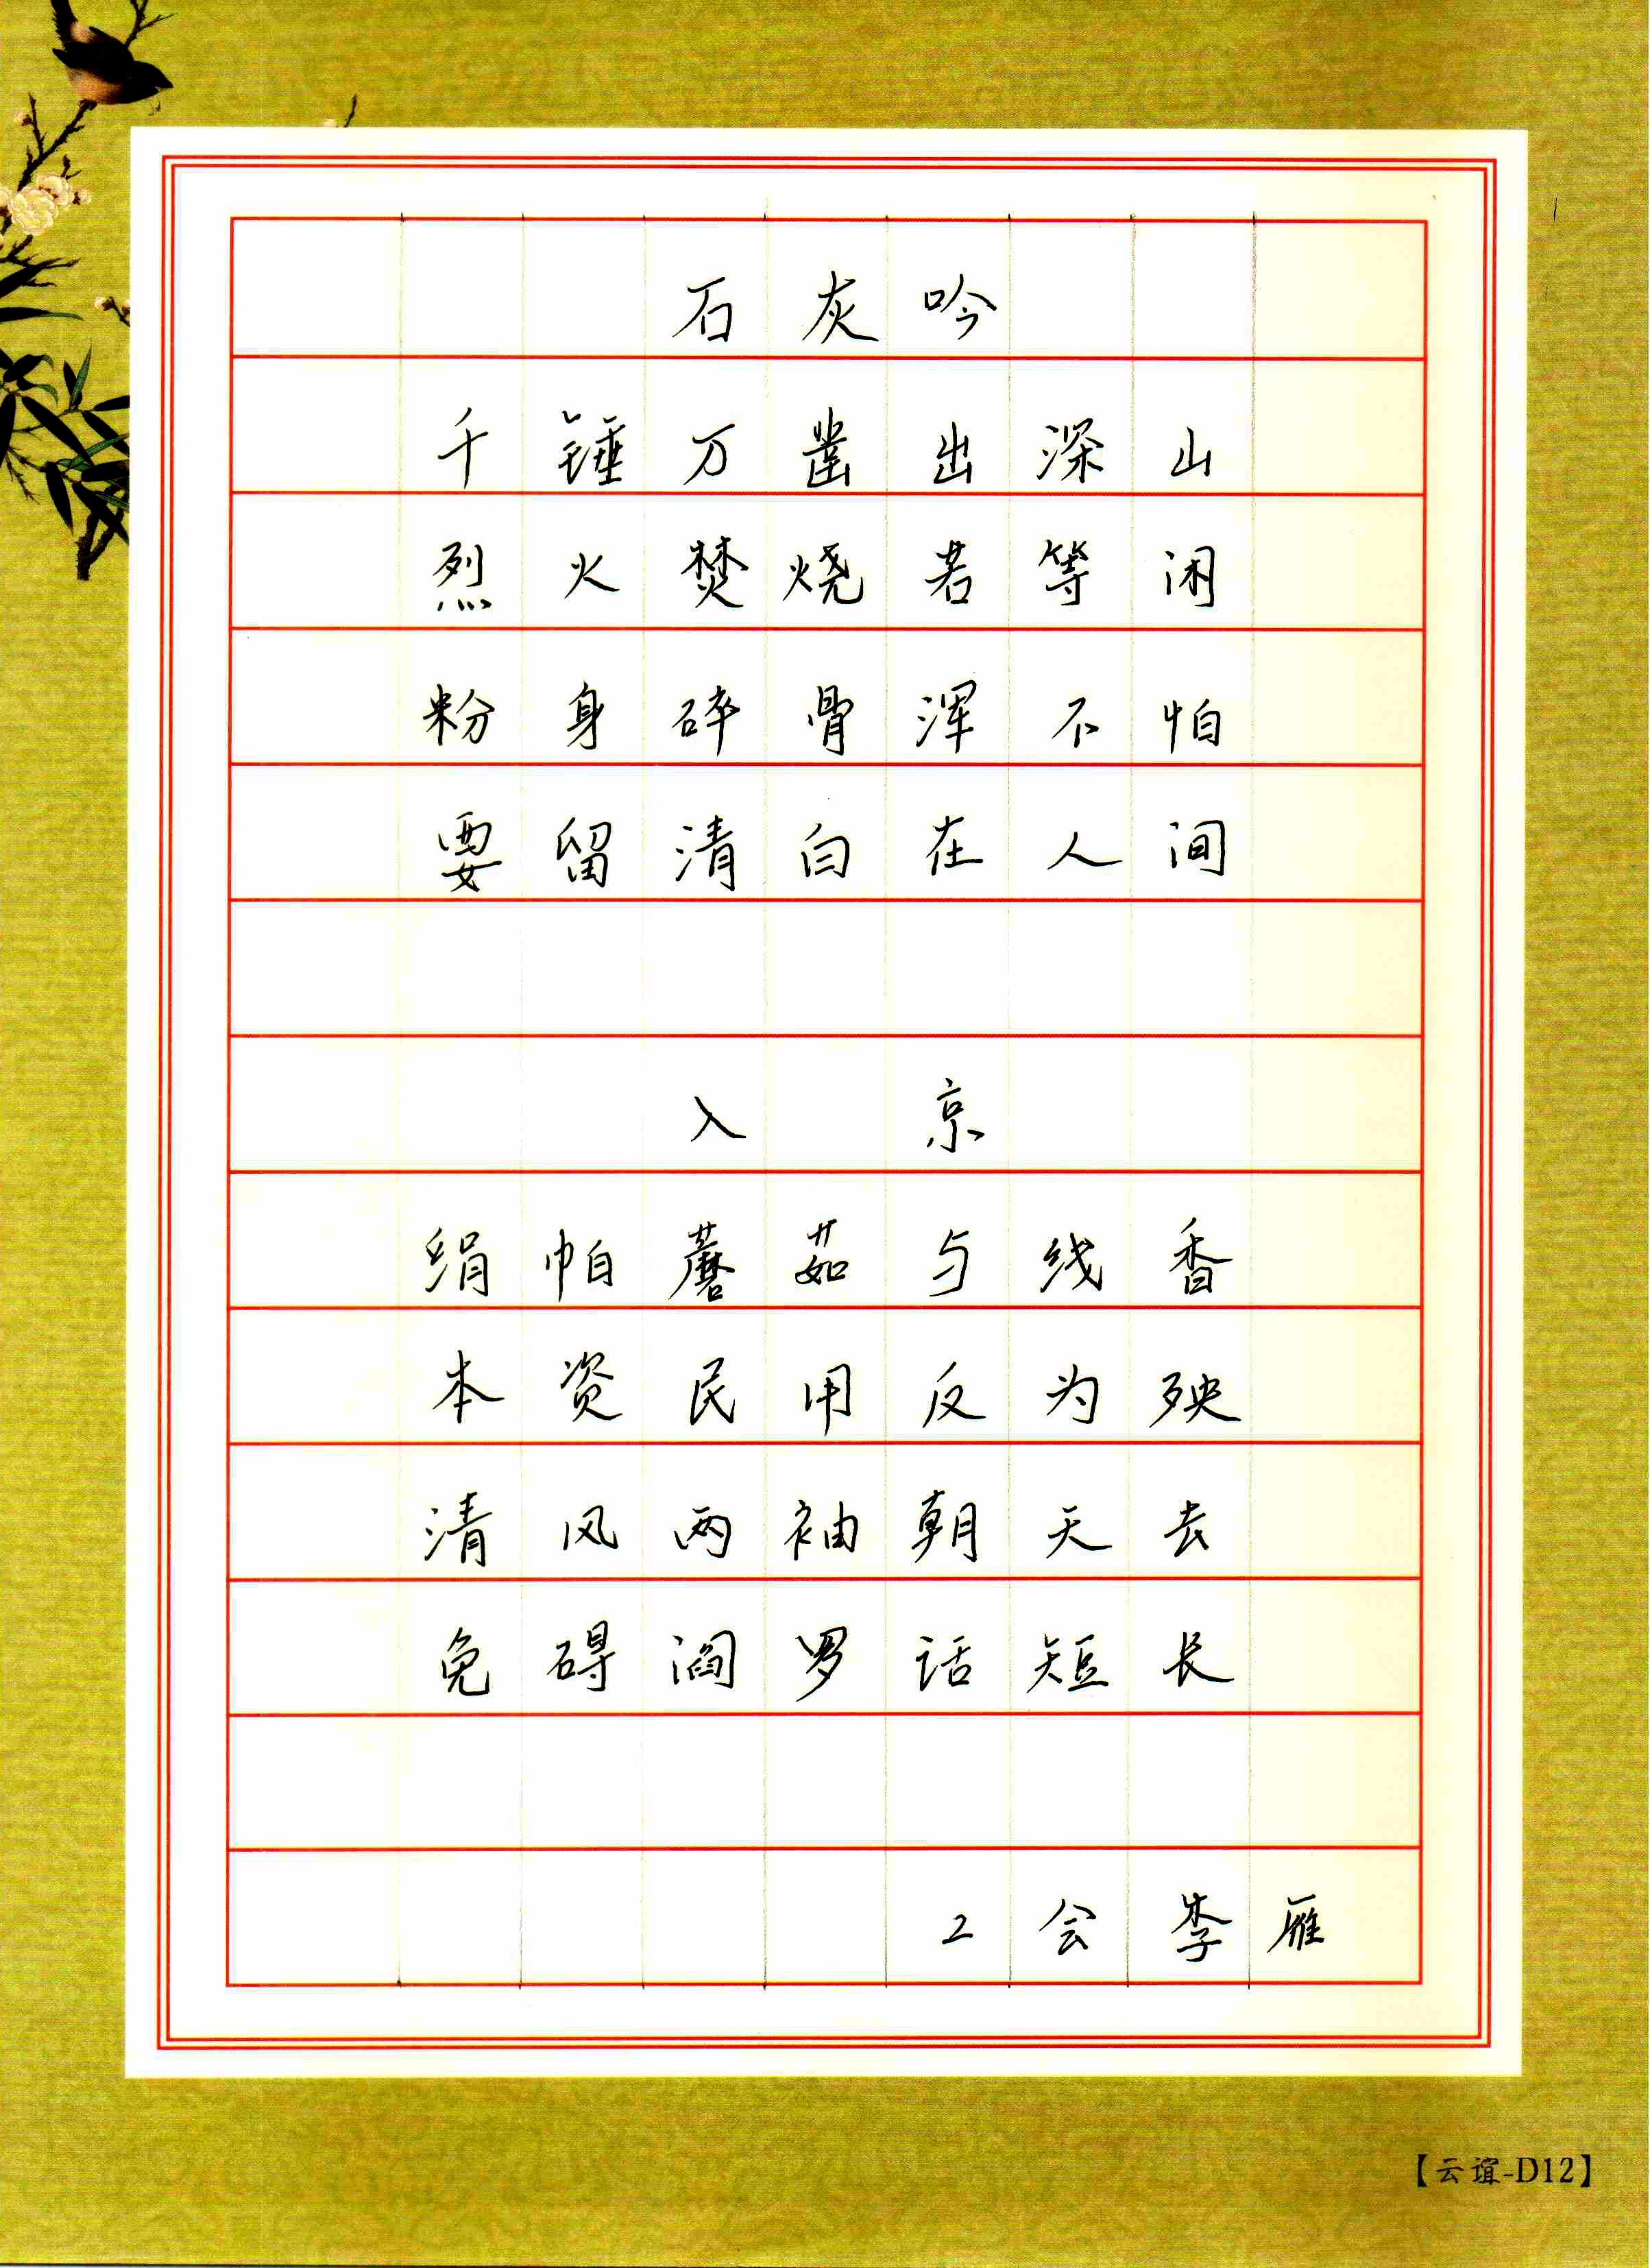 石灰吟
千锤万凿出深山
烈火焚烧若等闲
粉身碎骨浑不怕
要留清白在人间
入京
绢帕蘑茹与线香
本资民用反为殃
清风两袖朝天去
免碍阎罗话短长
工会李雁
【云谊-D12】